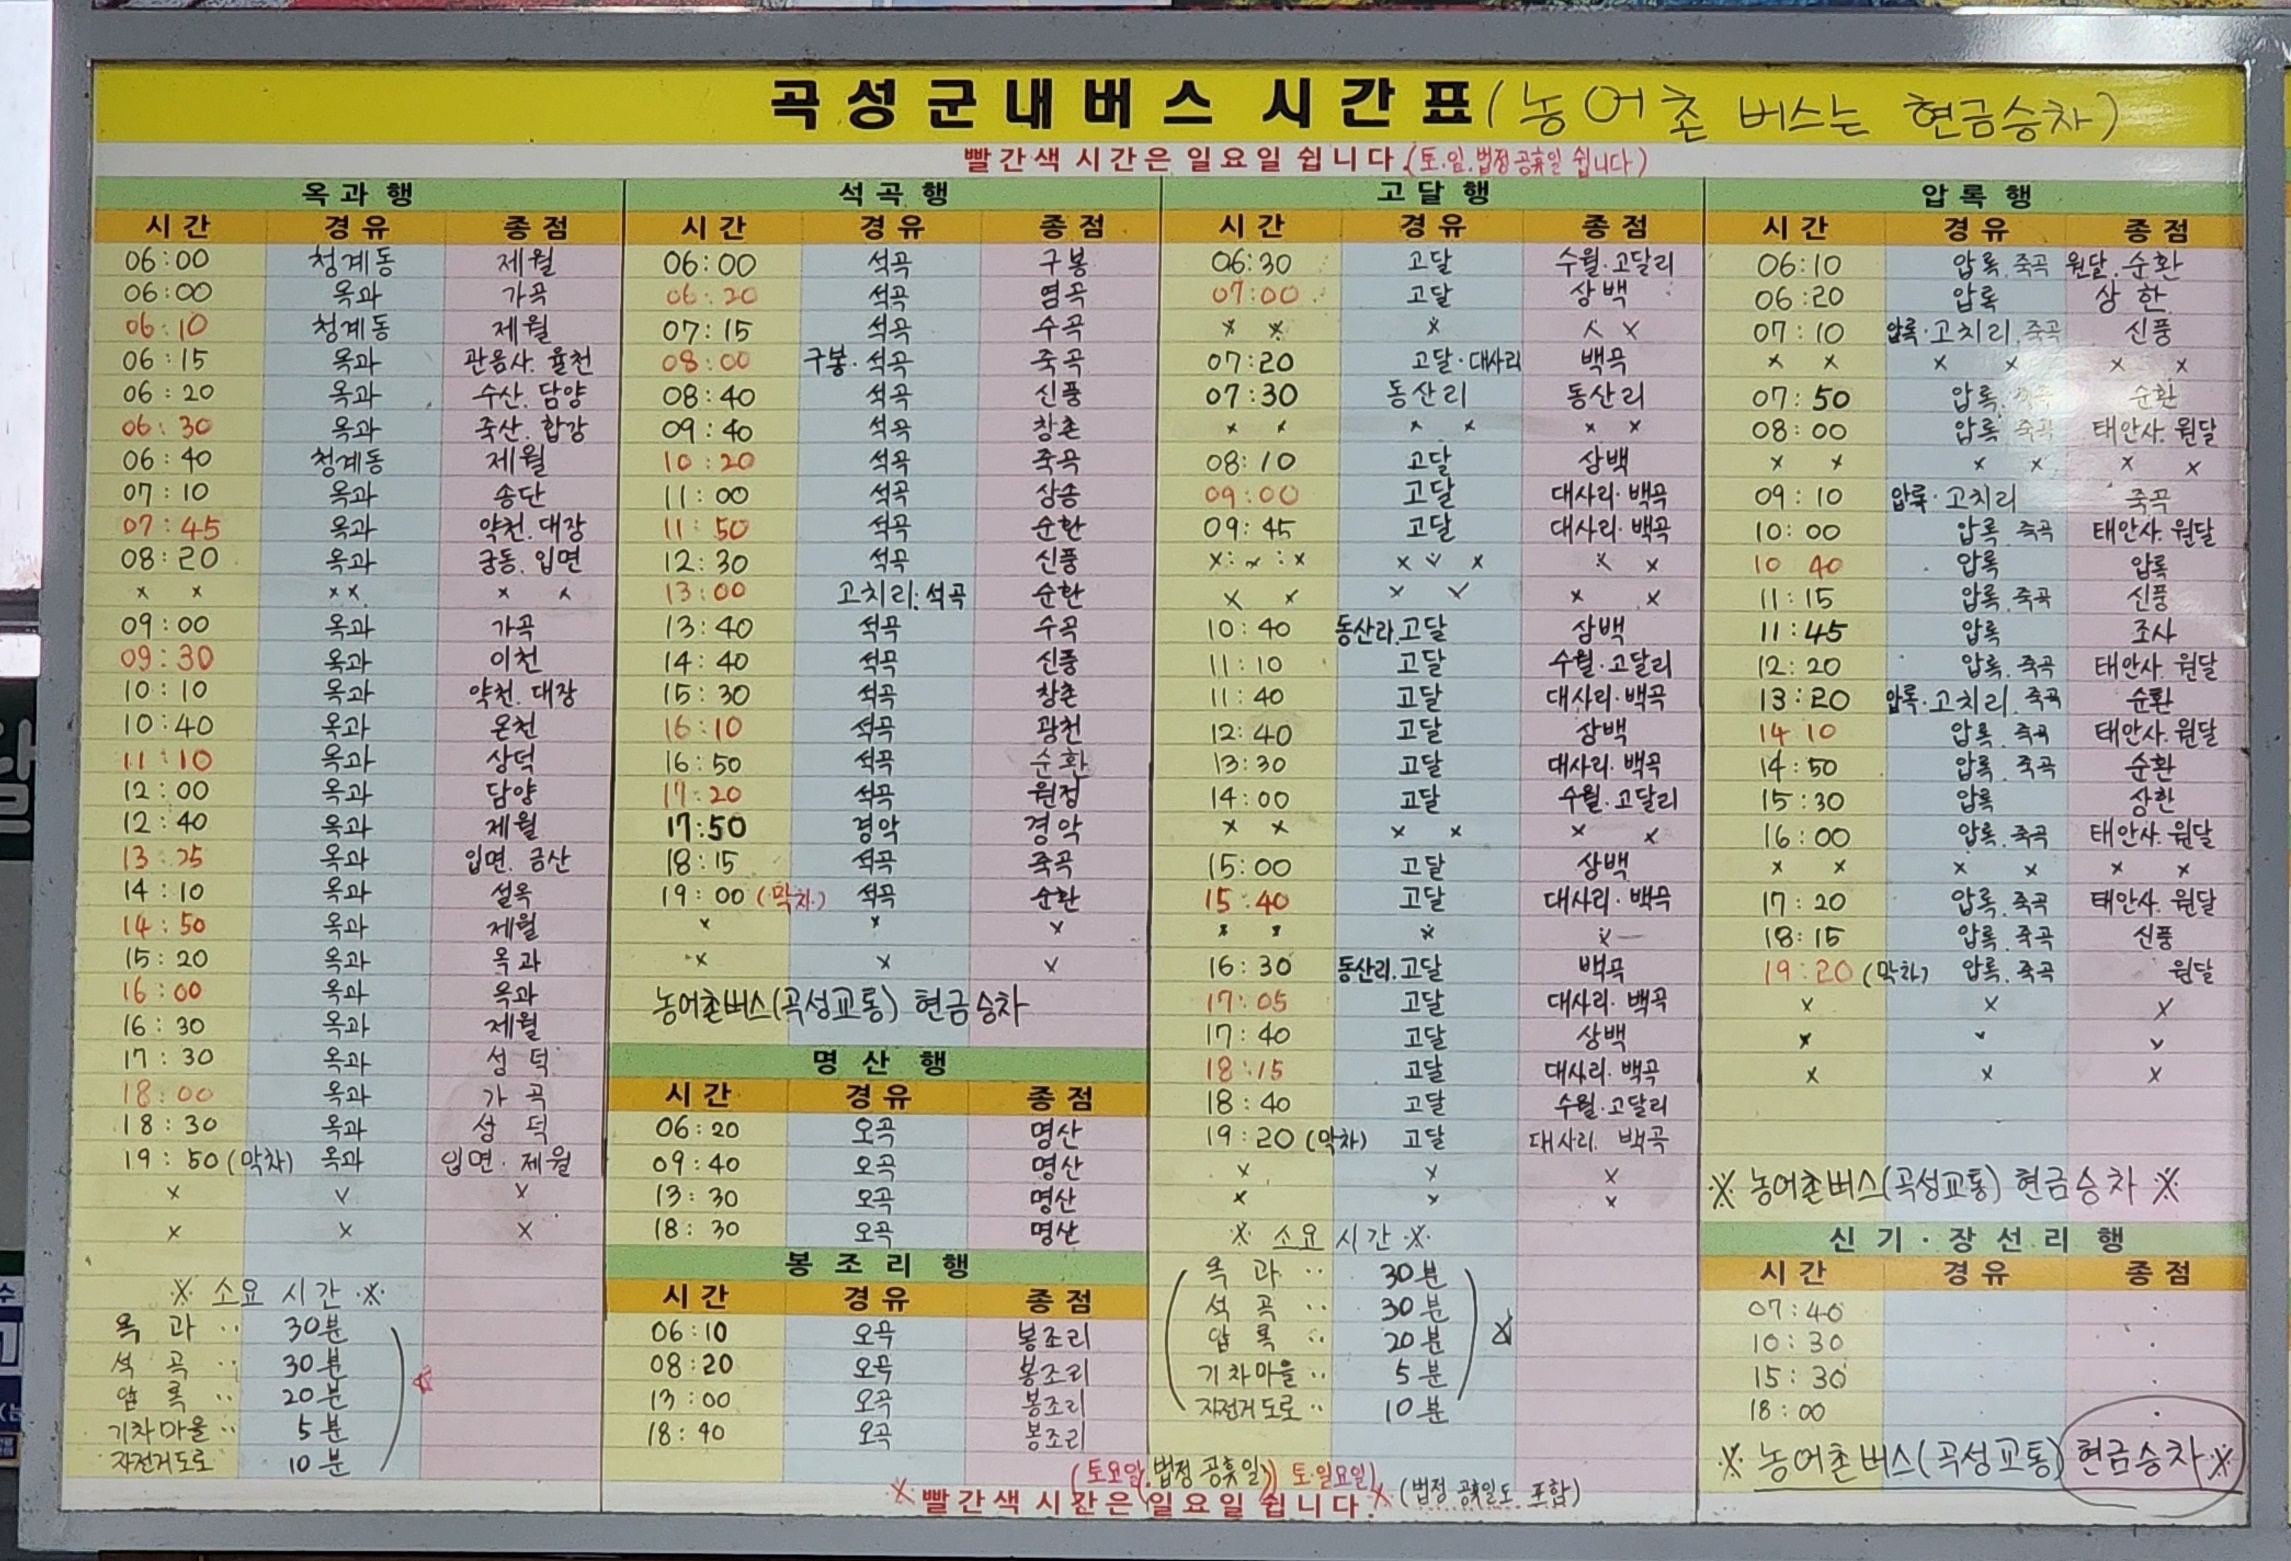 곡성군내버스 시간표 (농어촌 버스는 현금승차)
빨간색 시간은 일요일 쉽니다. (토.일.법정공휴일 쉽니다)
옥과행
시간 경유 종점
06:00 청계동 제월
06:00 옥과 가곡
06:10 청계동 제월
06:15 옥과 관음사. 율천
06:20 옥과 수산. 담양
06:30 옥과 죽산. 합강
06:40 청계동 제월
07:10 옥과 송단
07:45 옥과 약천. 대장
08:20 옥과 궁동. 입면
x x x x x x
09:00 옥과 가곡
09:30 옥과 이천
10:10 옥과 약천. 대장
10:40 옥과 온천
11:10 옥과 상덕
12:00 옥과 담양
12:40 옥과 제월
13:25 옥과 입면. 금산
14:10 옥과 설옥
14:50 옥과 제월
15:20 옥과 옥과
16:00 옥과 옥과
16:30 옥과 제월
17:30 옥과 성덕
18:00 옥과 가곡
18:30 옥과 성덕
19:50 (막차) 옥과 입면. 제월
x x x
x x x
※ 소요 시간 ※
옥과 ‥ 30분
석곡 ‥ 30분
압록 ‥ 20분
기차마을 ‥ 5분
자전거도로 10분
석곡행
시간 경유 종점
06:00 석곡 구봉
06:20 석곡 염곡
07:15 석곡 수곡
08:00 구봉·석곡 죽곡
08:40 석곡 신풍
09:40 석곡 창촌
10:20 석곡 죽곡
11:00 석곡 상송
11:50 석곡 순환
12:30 석곡 신풍
13:00 고치리·석곡 순환
13:40 석곡 수곡
14:40 석곡 신풍
15:30 석곡 창촌
16:10 석곡 광천
16:50 석곡 순환
17:20 석곡 원정
17:50 경악 경악
18:15 석곡 죽곡
19:00 (막차) 석곡 순환
x x x
x x x
농어촌버스(곡성교통) 현금승차
명산행
시간 경유 종점
06:20 오곡 명산
09:40 오곡 명산
13:30 오곡 명산
18:30 오곡 명산
봉조리행
시간 경유 종점
06:10 오곡 봉조리
08:20 오곡 봉조리
13:00 오곡 봉조리
18:40 오곡 봉조리
고달행
시간 경유 종점
06:30 고달 수월·고달리
07:00 고달 상백
x x x x x
07:20 고달·대사리 백곡
07:30 동산리 동산리
x x x x x x
08:10 고달 상백
09:00 고달 대사리·백곡
09:45 고달 대사리·백곡
x : x : x x x x x x
x x x x x x
10:40 동산리.고달 상백
11:10 고달 수월·고달리
11:40 고달 대사리·백곡
12:40 고달 상백
13:30 고달 대사리·백곡
14:00 고달 수월·고달리
x x x x x x
15:00 고달 상백
15:40 고달 대사리·백곡
x x x x
16:30 동산리.고달 백곡
17:05 고달 대사리·백곡
17:40 고달 상백
18:15 고달 대사리·백곡
18:40 고달 수월·고달리
19:20 (막차) 고달 대사리. 백곡
x x x
x x x
※ 소요 시간 ※
옥과 ‥ 30분
석곡 ‥ 30분
압록 ‥ 20분
기차마을 ‥ 5분
자전거도로 ‥ 10분
압록행
시간 경유 종점
06:10 압록.죽곡 원달.순환
06:20 압록 상한
07:10 압록·고치리.죽곡 신풍
x x x x x x
07:50 압록.죽곡 순환
08:00 압록.죽곡 태안사.원달
x x x x x x
09:10 압록·고치리 죽곡
10:00 압록.죽곡 태안사.원달
10 40 압록 압록
11:15 압록.죽곡 신풍
11:45 압록 조사
12:20 압록.죽곡 태안사.원달
13:20 압록·고치리.죽곡 순환
14 10 압록.죽곡 태안사.원달
14:50 압록.죽곡 순환
15:30 압록 상한
16:00 압록.죽곡 태안사.원달
x x x x x x
17:20 압록.죽곡 태안사.원달
18:15 압록.죽곡 신풍
19:20 (막차) 압록.죽곡 원달
x x x
x x x
x x x
※ 농어촌버스(곡성교통) 현금승차 ※
신기·장선리행
시간 경유 종점
07:40
10:30
15:30
18:00
※ 농어촌버스(곡성교통) 현금승차 ※
(토요일,법정 공휴일) 토·일요일)
※ 빨간색 시간은 일요일 쉽니다. ※ (법정 공휴일도 포함)